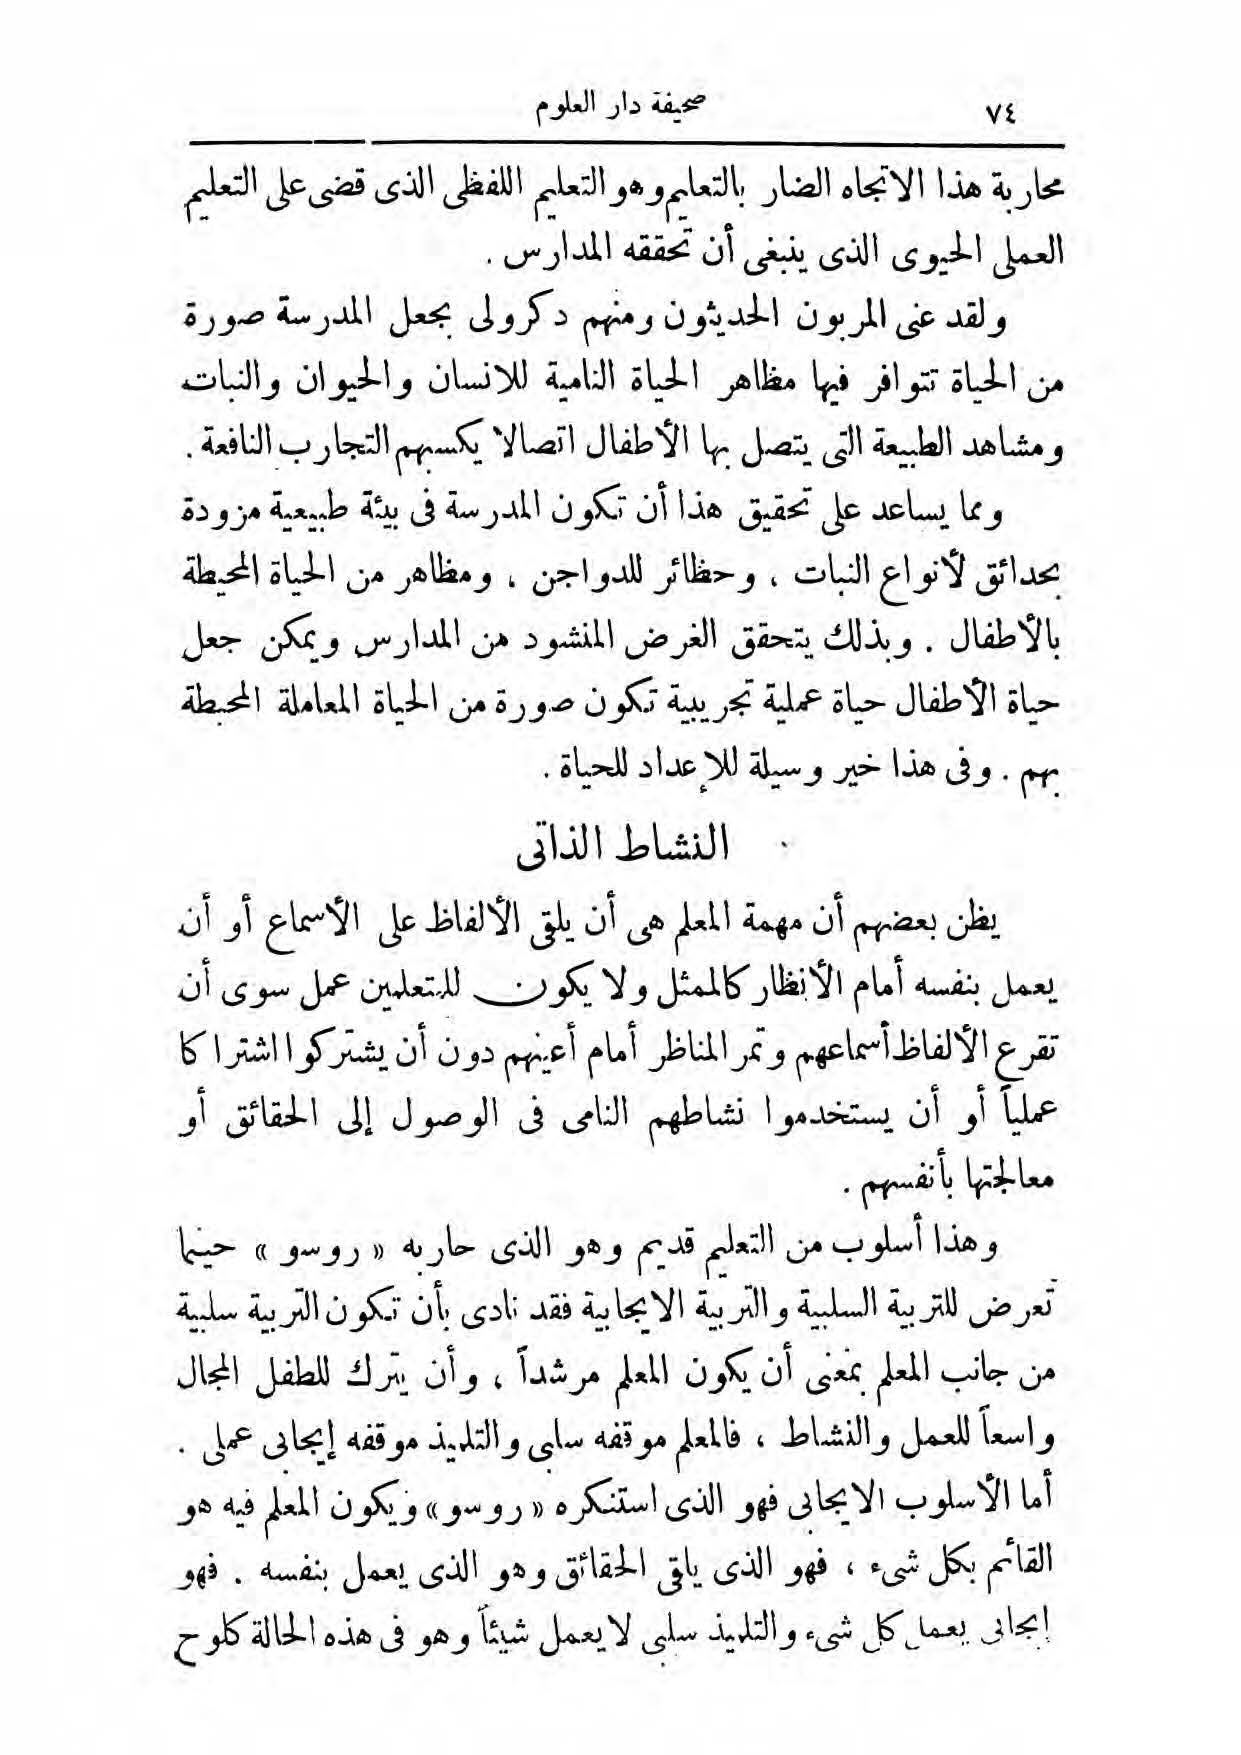 ٧٤
صحيفة دار العلوم
محاربة هذا الاتجاه الضار بالتعليم وهو التعليم اللفظى الذى قضى على التعليم
العملى الحيوى الذى ينبغى أن تحققه المدارس .
ولقد عنى المربون الحديثون ومنهم دكرولى بجعل المدرسة صورة
من الحياة تتوافر فيها مظاهر الحياة النامية للانسان والحيوان والنبات
ومشاهد الطبيعة التى يتصل بها الأطفال اتصالا يكسبهم التجارب النافعة .
ومما يساعد على تحقيق هذا أن تكون المدرسة فى بيئة طبيعية مزودة
بحدائق لأنواع النبات ، وحظائر للدواجن ، ومظاهر من الحياة المحيطة
بالأطفال . وبذلك يتحقق الغرض المنشود من المدارس ويمكن جعل
حياة الأطفال حياة عملية تجريبية تكون صورة من الحياة المعاملة المحيطة
بهم . وفى هذا خير وسيلة للإعداد للحياة .
النشاط الذاتى
يظن بعضهم أن مهمة المعلم هى أن يلقى الألفاظ على الأسماع أو أن
يعمل بنفسه أمام الأنظار كالممثل ولا يكون للمتعلمين عمل سوى أن
تقرع الألفاظ أسماعهم وتمر المناظر أمام أعينهم دون أن يشتركوا اشتراكا
عملياً أو أن يستخدموا نشاطهم النامى فى الوصول إلى الحقائق أو
معالجتها بأنفسهم .
وهذا أسلوب من التعليم قديم وهو الذى حاربه « روسو » حينما
تعرض للتربية السلبية والتربية الايجابية فقد نادى بأن تكون التربية سلبية
من جانب المعلم بمعنى أن يكون المعلم مرشداً ، وأن يترك للطفل المجال
واسعاً للعمل والنشاط ، فالمعلم موقفه سلبى والتلميذ موقفه إيجابى عملى .
أما الأسلوب الايجابى فهو الذى استنكره « روسو » ويكون المعلم فيه هو
القائم بكل شىء ، فهو الذى يلقى الحقائق وهو الذى يعمل بنفسه . فهو
إيجابى يعمل كل شىء والتلميذ سلبى لا يعمل شيئاً وهو فى هذه الحالة كلوح